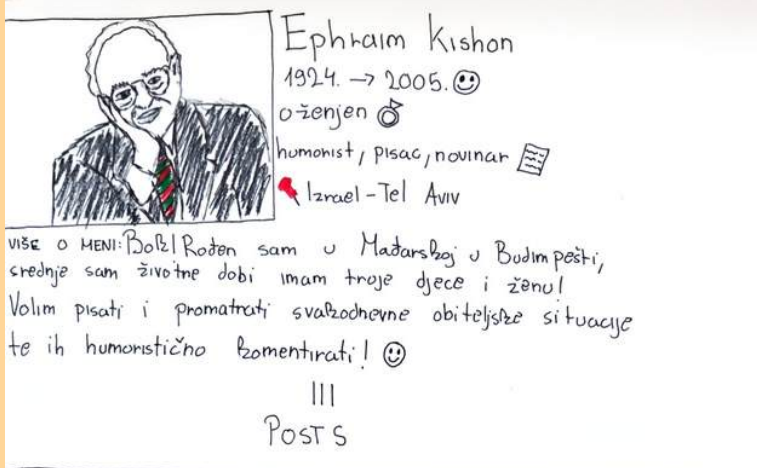 Ephraim Kishon
1924. → 2005. ☺
oženjen
humorist, pisac, novinar
Izrael - Tel Aviv
VIŠE O MENI: Bok! Rođen sam u Mađarskoj u Budimpešti,
srednje sam životne dobi imam troje djece i ženu!
Volim pisati i promatrati svakodnevne obiteljske situacije
te ih humoristično komentirati! ☺
|||
POSTS